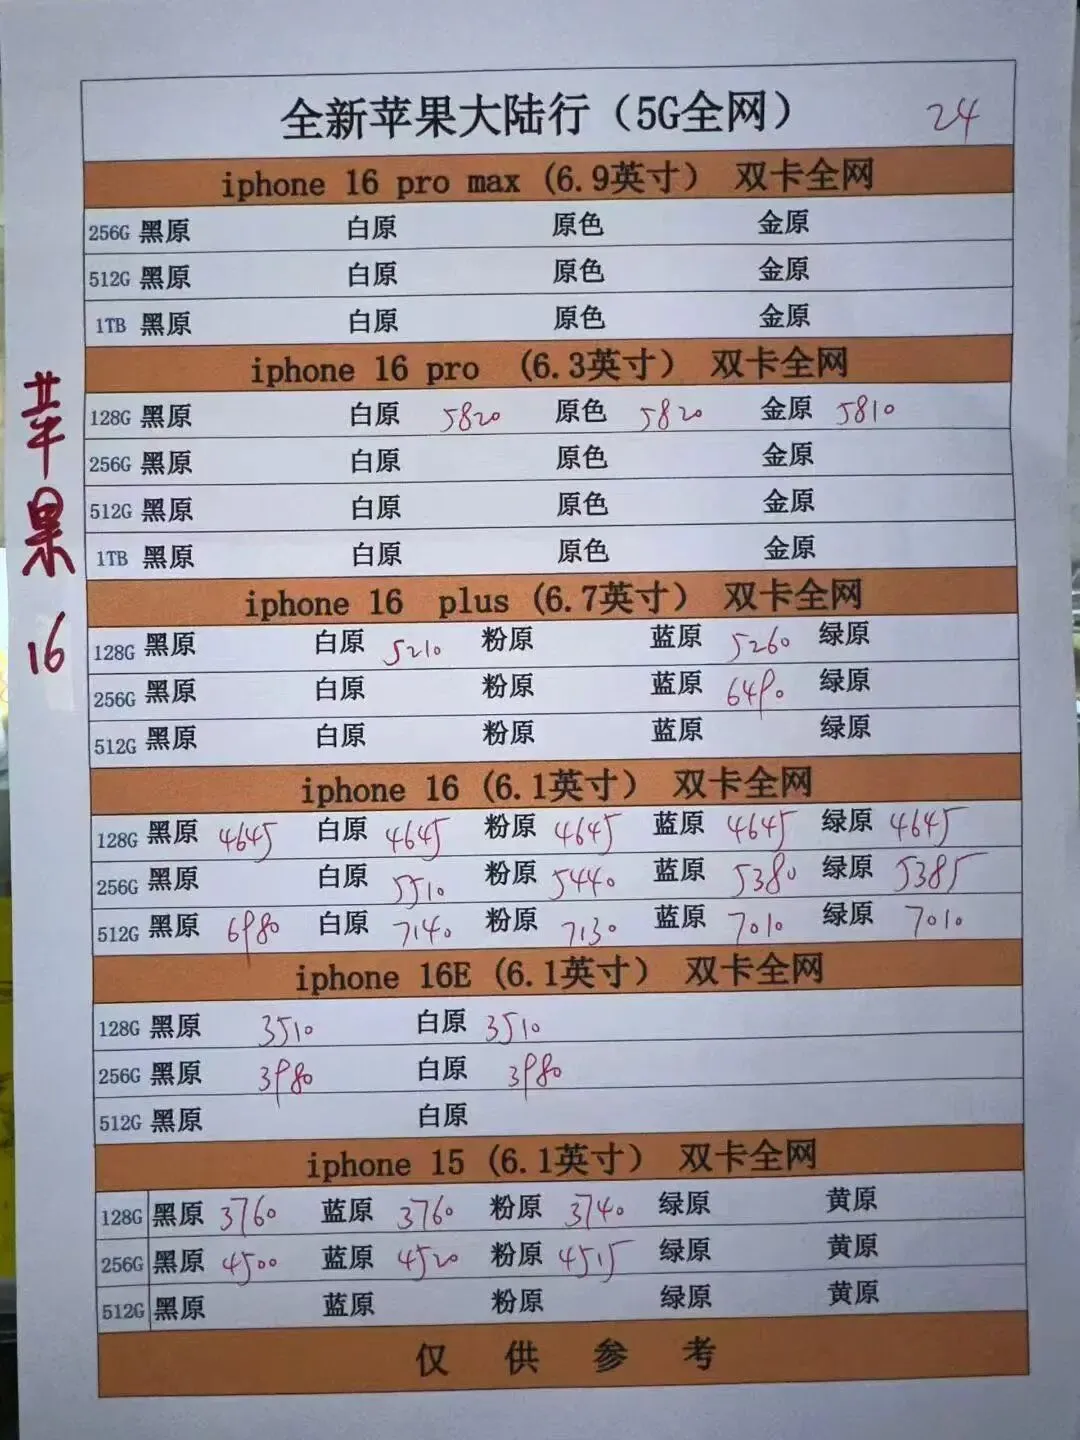 全新苹果大陆行（5G全网） 24
iphone 16 pro max（6.9英寸） 双卡全网
256G 黑原 白原 原色 金原
512G 黑原 白原 原色 金原
1TB 黑原 白原 原色 金原
iphone 16 pro （6.3英寸） 双卡全网
128G 黑原 白原 5820 原色 5820 金原 5810
256G 黑原 白原 原色 金原
512G 黑原 白原 原色 金原
1TB 黑原 白原 原色 金原
iphone 16 plus（6.7英寸） 双卡全网
128G 黑原 白原 5210 粉原 蓝原 5260 绿原
256G 黑原 白原 粉原 蓝原 6490 绿原
512G 黑原 白原 粉原 蓝原 绿原
iphone 16（6.1英寸） 双卡全网
128G 黑原 4645 白原 4645 粉原 4645 蓝原 4645 绿原 4645
256G 黑原 白原 5510 粉原 5440 蓝原 5380 绿原 5385
512G 黑原 6980 白原 7140 粉原 7130 蓝原 7010 绿原 7010
iphone 16E（6.1英寸） 双卡全网
128G 黑原 3510 白原 3510
256G 黑原 3980 白原 3980
512G 黑原 白原
iphone 15（6.1英寸） 双卡全网
128G 黑原 3760 蓝原 3760 粉原 3740 绿原 黄原
256G 黑原 4500 蓝原 4520 粉原 4515 绿原 黄原
512G 黑原 蓝原 粉原 绿原 黄原
仅供参考
苹果16